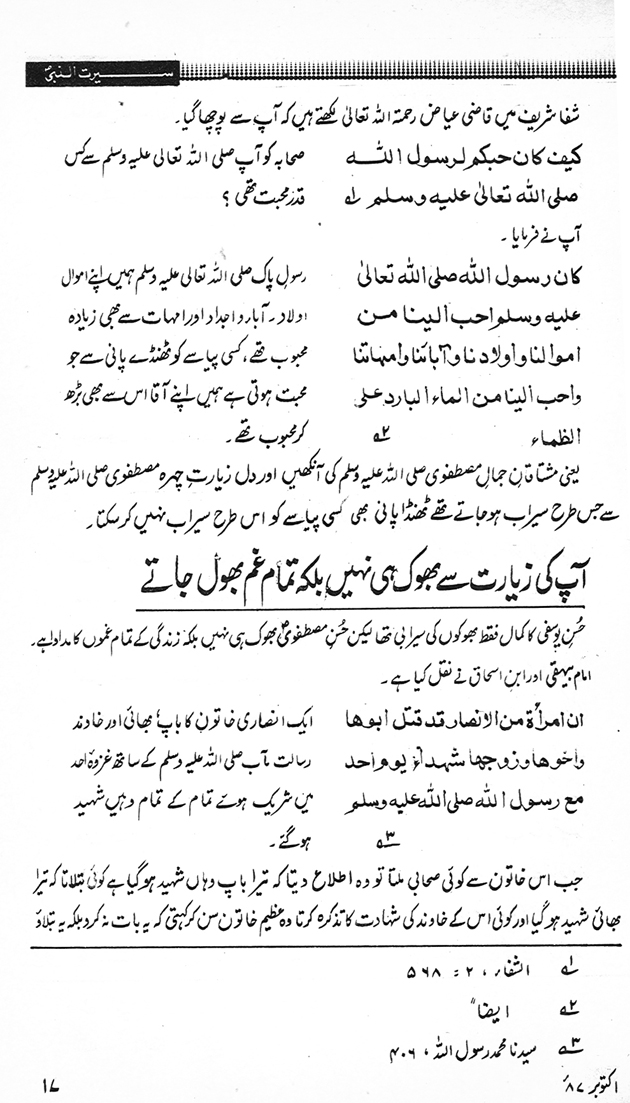 سیرت النبیؐ
شفا شریف میں قاضی عیاض رحمۃ اللہ تعالیٰ لکھتے ہیں کہ آپ سے پوچھا گیا۔
کیف کان حبکم لرسول اللہ
صلی اللہ تعالیٰ علیہ وسلم ؎۱
صحابہ کو آپ صلی اللہ تعالیٰ علیہ وسلم سے کس
قدر محبت تھی ؟
آپ نے فرمایا۔
کان رسول اللہ صلی اللہ تعالیٰ
علیہ وسلم احب الینا من
اموالنا واولادنا وآبائنا وامہاتنا
واحب الینا من الماء البارد علی
الظماء ؎۲
رسول پاک صلی اللہ تعالیٰ علیہ وسلم ہمیں اپنے اموال
اولاد۔ آباء و اجداد اور امہات سے بھی زیادہ
محبوب تھے، کسی پیاسے کو ٹھنڈے پانی سے جو
محبت ہوتی ہے ہمیں اپنے آقا اس سے بھی بڑھ
کر محبوب تھے۔
یعنی مشتاقانِ جمالِ مصطفوی صلی اللہ علیہ وسلم کی آنکھیں اور دل زیارتِ چہرہ مصطفوی صلی اللہ علیہ وسلم
سے جس طرح سیراب ہو جاتے تھے ٹھنڈا پانی بھی کسی پیاسے کو اس طرح سیراب نہیں کر سکتا۔
آپ کی زیارت سے بھوک ہی نہیں بلکہ تمام غم بھول جاتے
حسنِ یوسفی کا کمال فقط بھوکوں کی سیرابی تھا لیکن حسنِ مصطفویؐ بھوک ہی نہیں بلکہ زندگی کے تمام غموں کا مداوا ہے۔
امام بیہقی اور ابنِ اسحاق نے نقل کیا ہے۔
ان امرأۃ من الانصار قد قتل ابوھا
واخوھا وزوجھا شھداء یوم احد
مع رسول اللہ صلی اللہ علیہ وسلم
؎۳
ایک انصاری خاتون کا باپ، بھائی اور خاوند
رسالت مآب صلی اللہ علیہ وسلم کے ساتھ غزوہ احد
میں شریک ہوئے تمام کے تمام وہیں شہید
ہو گئے۔
جب اس خاتون سے کوئی صحابی ملتا تو وہ اطلاع دیتا کہ تیرا باپ وہاں شہید ہو گیا ہے کوئی بتلاتا کہ تیرا
بھائی شہید ہو گیا اور کوئی اس کے خاوند کی شہادت کا تذکرہ کرتا وہ عظیم خاتون سن کر کہتی کہ یہ بات نہ کرو بلکہ یہ بتلاؤ
؎۱ الشفاء، ۲ = ۵۶۸
؎۲ ایضاً
؎۳ سیدنا محمد رسول اللہ، ۴۰۶
اکتوبر ۸۷ء
۱۷